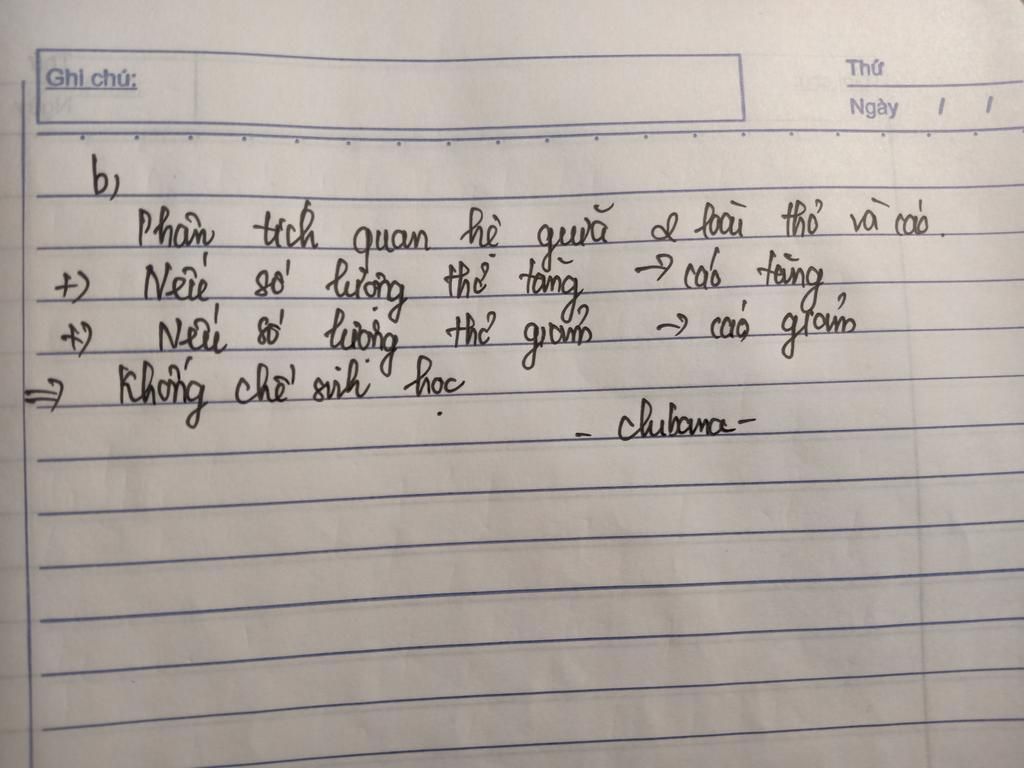 Ghi chú:
Thứ
Ngày / /
b,
Phân tích quan hệ giữa 2 loài thỏ và cáo.
+) Nếu số lượng thỏ tăng → cáo tăng
+) Nếu số lượng thỏ giảm → cáo giảm
=> Khống chế sinh học
- clubama -